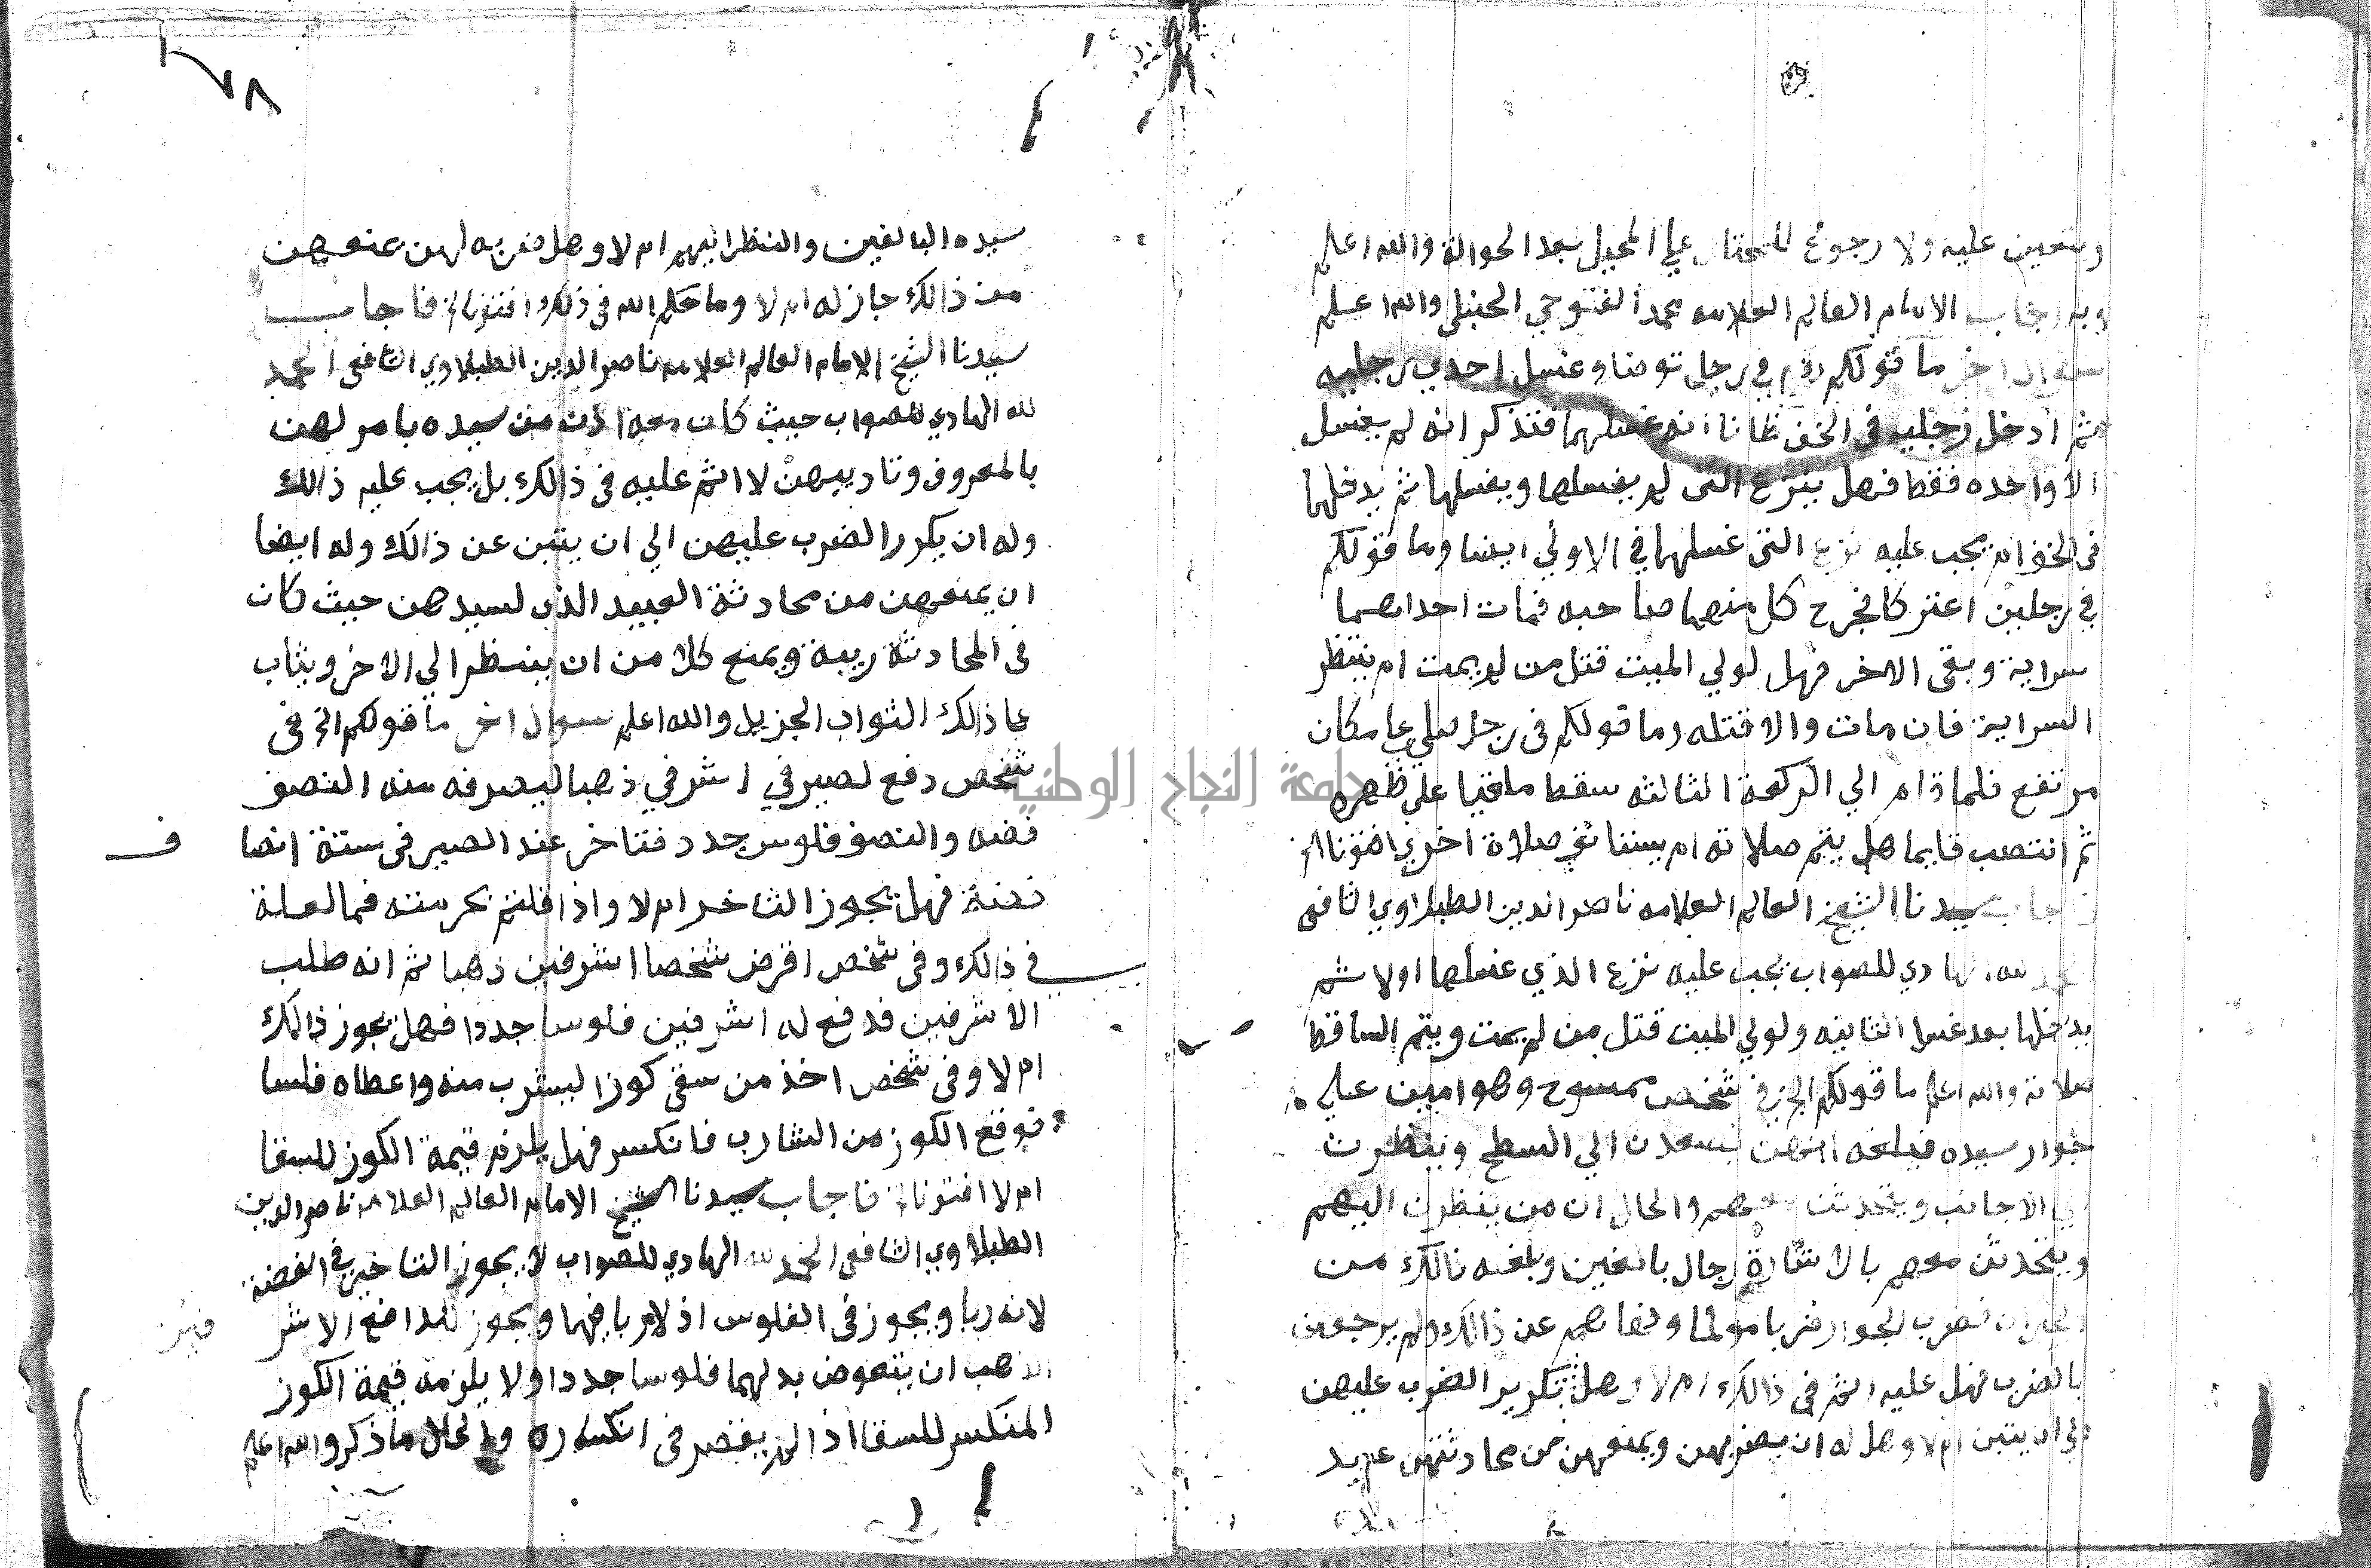 ويتعين عليه ولا رجوع للمحتال علي المحيل بعد الحوالة والله اعلم
وبه اجاب الامام العالم العلامه محمد الفتوحي الحنبلي والله اعلم
سوال اخر ما قولكم في رجل توضا وغسل احدي رجليه
ثم ادخل رجليه في الخف ظانا انه غسلهما فتذكر انه لم يغسل
الا واحده فقط فهل ينزع التي لم يغسلها ويغسلها ثم يدخلها
في الخف ام يجب عليه نزع التي غسلها في الاولي ايضا وما قولكم
في رجلين اعتركا فجرح كل منهما صاحبه فمات احداهما
سراية وبقي الاخر فهل لولي الميت قتل من لم يمت ام ينتظر
السراية فان مات والا قتله وما قولكم في رجل صلي علي مكان
مرتفع فلما قام الي الركعة الثالثه سقط ملقيا علي ظهره
ثم انتصب قايما هل يتم صلاته ام يستانف صلاة اخري افتونا الخ
فاجاب سيدنا الشيخ العالم العلامه ناصر الدين الطبلاوي الشافعي
الحمد لله الهادي للصواب يجب عليه نزع الذي غسلها اولا ثم
يدخلها بعد غسل الثانيه ولولي الميت قتل من لم يمت ويتم الساقط
صلاته والله اعلم ما قولكم الخ في شخص ممسوح وهو امين علي
جوار سيده فبلغه انهن يصعدن الي السطح وينظرن
الي الاجانب ويتحدثن معهم والحال ان من ينظرن اليهم
ويتحدثن معهم بالاشارة رجال بالغين وبلغه ذالك من
الجيران فضرب الجوار ضربا مولما ونهاهم عن ذالك ولم يرجعن
بالضرب فهل عليه اثم في ذالك ام لا وهل تكرير الضرب عليهن
الي ان يتبن ام لا وهل له ان يضربهن ويمنعهن من محادثتهن عبيد
٧٨
سيده البالغين والنظر اليهم ام لا وهل ضربه لهن بمنعهن
من ذالك جاز له ام لا وما حكم الله في ذلك افتونا الخ فاجاب
سيدنا الشيخ الامام العالم العلامه ناصر الدين الطبلاوي الشافعي الحمد
لله الهادي للصواب حيث كان معه اذن من سيده بامر لهن
بالمعروف وتاديبهن لا اثم عليه في ذالك بل يجب عليه ذالك
وله ان يكرر الضرب عليهن الي ان يتبن عن ذالك وله ايضا
ان يمنعهن من محادثة العبيد الذي لسيدهن حيث كان
في المحادثة ريبة ويمنع كلا من ان ينظر الي الاخر ويثاب
علي ذالك الثواب الجزيل والله اعلم سوال اخر ما قولكم الخ في
شخص دفع لصيرفي اشرفي ذهبا ليصرفه منه النصف
فضه والنصف فلوس جدد فتاخر عند الصيرفي ستة انصا
ف
فضة فهل يجوز التاخر ام لا واذا قلتم بحرمته فما العلة
في ذالك وفي شخص اقرض شخصا اشرفين ذهبا ثم انه طلب
الاشرفين فدفع له اشرفين فلوسا جددا فهل يجوز ذالك
ام لا وفي شخص اخذ من سقي كوزا ليشرب منه واعطاه فلسا
فوقع الكوز من الشارب فانكسر فهل يلزمه قيمة الكوز للسقا
ام لا افتونا الخ فاجاب سيدنا الشيخ الامام العالم العلامه ناصر الدين
الطبلاوي الشافعي الحمد لله الهادي للصواب لا يجوز التاخير في الفضة
لانه ربا ويجوز في الفلوس اذ لا ربا فيها ويجوز للدافع الاشر
فين
الذهب ان يتعوض بدلهما فلوسا جددا ولا يلزمه قيمة الكوز
المنكسر للسقا اذا لم يقصر في انكساره والحال ما ذكر والله اعلم
جامعة النجاح الوطنية